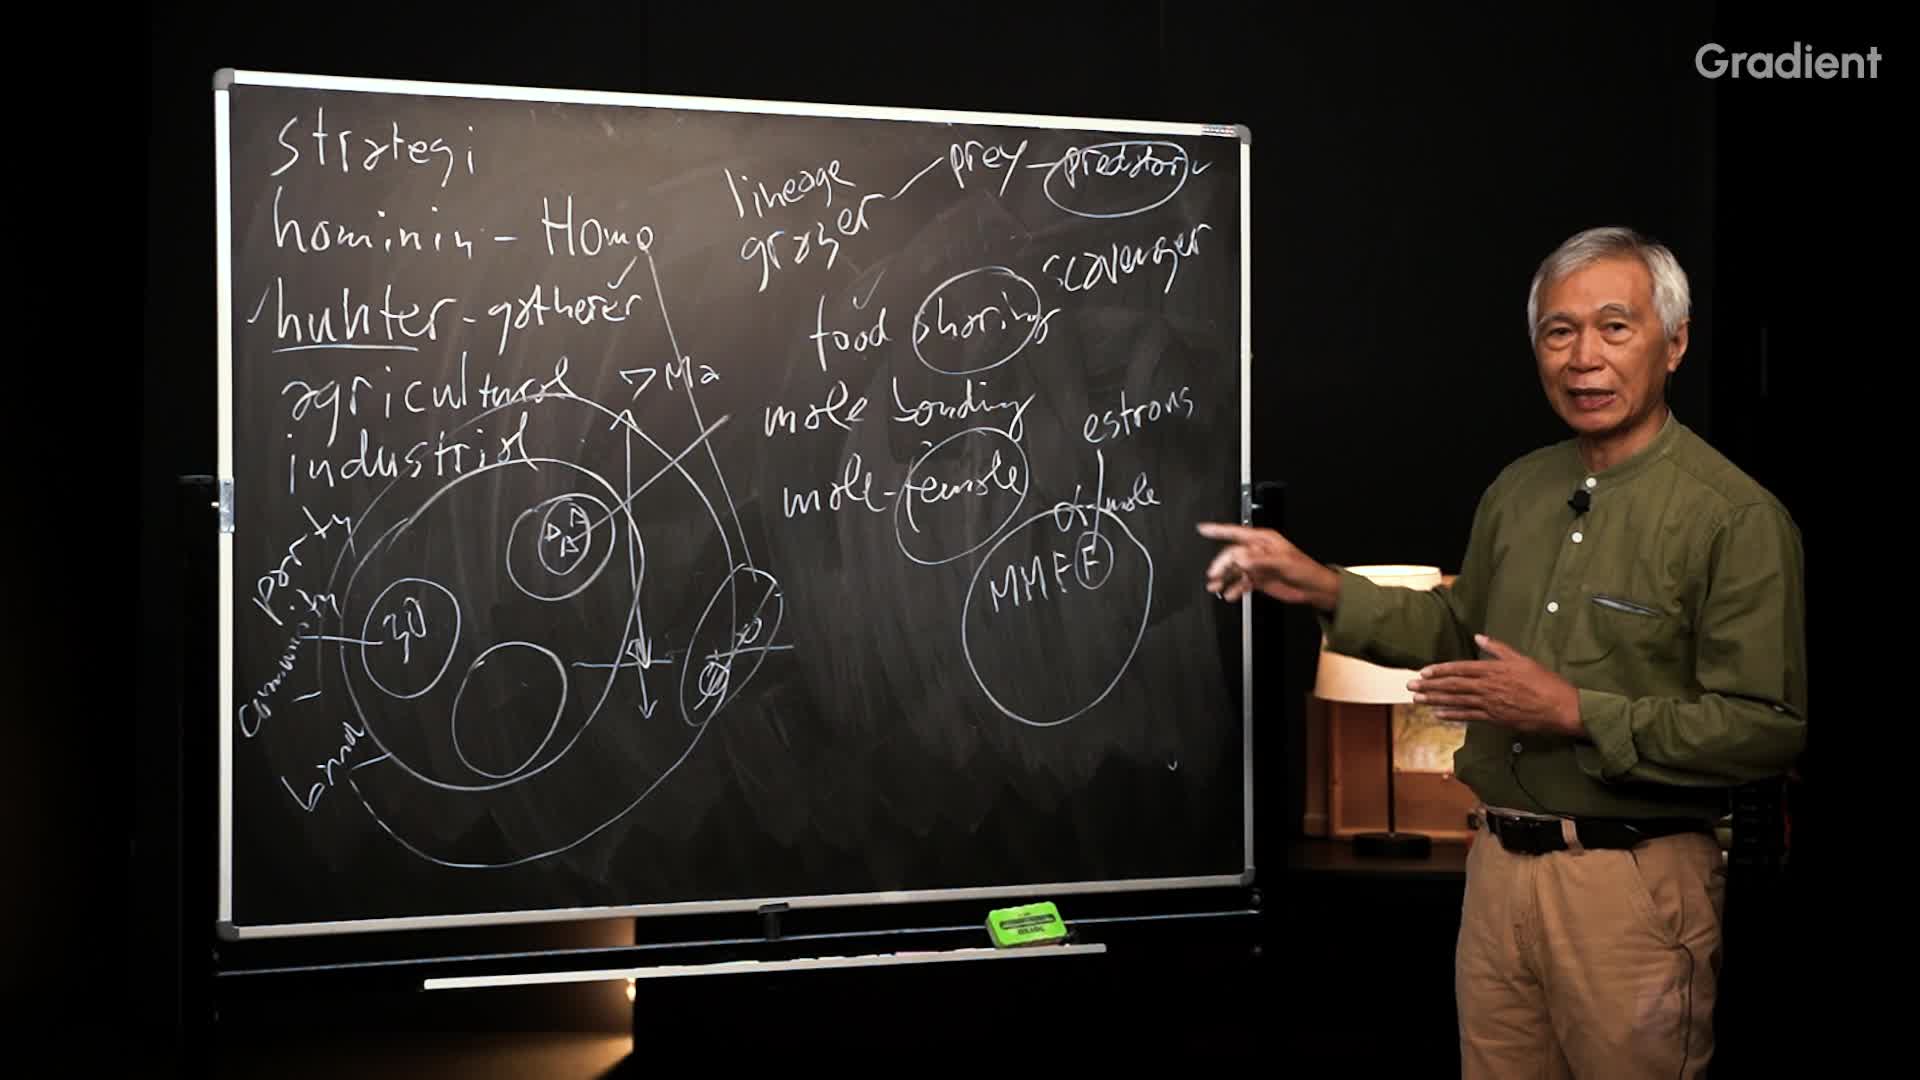 Gradient
strategi
hominin - Homo
hunter - gatherer
agricultural
7 Ma
industrial
party
community
band
30
lineage
grazer - prey - predator
scavenger
food sharing
male bonding
male - female
estrous
α male
MMFF